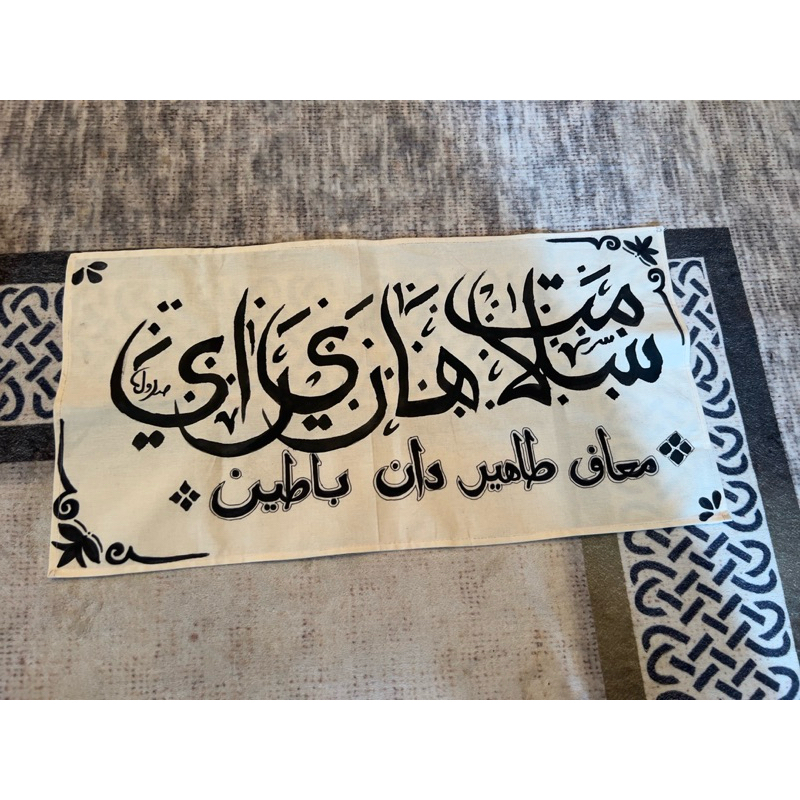 سلامت هاري راي
معاف طاهير دان باطين